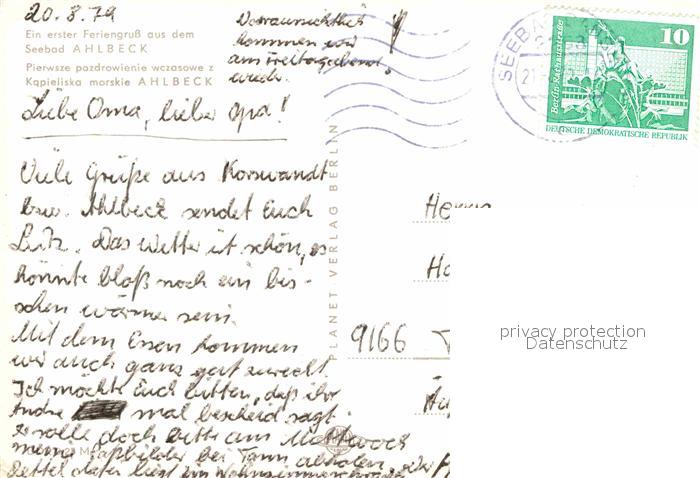 20.8.79
Ein erster Feriengruß aus dem
Seebad AHLBECK
Pierwsze pozdrowienie wczasowe z
Kąpieliska morskie AHLBECK
Voraussichtlich
kommen wir
am Freitagabend
wieder.
Liebe Oma, lieber Opa!
Viele Grüße aus Korswandt
bzw. Ahlbeck sendet Euch
Lutz. Das Wetter ist schön, es
könnte bloß noch ein bis-
schen wärmer sein.
Mit dem Essen kommen
wir auch ganz gut zurecht.
Ich möchte Euch bitten, daß ihr
Andre mal bescheid sagt.
Er solle doch bitte am Mittwoch
meine Paßbilder bei Tann abholen, der
Zettel dafür liegt im Wohnzimmerschrank
PLANET-VERLAG BERLIN
SEEBAD
21
Berlin-Rathausstraße
10
DEUTSCHE DEMOKRATISCHE REPUBLIK
9166
privacy protection
Datenschutz